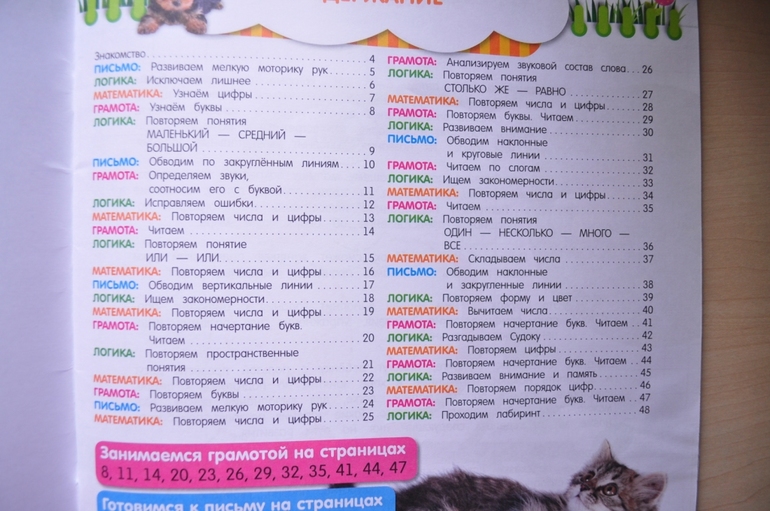 Знакомство 4
ПИСЬМО: Развиваем мелкую моторику рук 5
ЛОГИКА: Исключаем лишнее 6
МАТЕМАТИКА: Узнаём цифры 7
ГРАМОТА: Узнаём буквы 8
ЛОГИКА: Повторяем понятия
МАЛЕНЬКИЙ — СРЕДНИЙ —
БОЛЬШОЙ 9
ПИСЬМО: Обводим по закруглённым линиям 10
ГРАМОТА: Определяем звуки,
соотносим его с буквой 11
ЛОГИКА: Исправляем ошибки 12
МАТЕМАТИКА: Повторяем числа и цифры 13
ГРАМОТА: Читаем 14
ЛОГИКА: Повторяем понятие
ИЛИ — ИЛИ 15
МАТЕМАТИКА: Повторяем числа и цифры 16
ПИСЬМО: Обводим вертикальные линии 17
ЛОГИКА: Ищем закономерности 18
МАТЕМАТИКА: Повторяем числа и цифры 19
ГРАМОТА: Повторяем начертание букв.
Читаем 20
ЛОГИКА: Повторяем пространственные
понятия 21
МАТЕМАТИКА: Повторяем числа и цифры 22
ГРАМОТА: Повторяем буквы 23
ПИСЬМО: Развиваем мелкую моторику рук 24
МАТЕМАТИКА: Повторяем числа и цифры 25
ГРАМОТА: Анализируем звуковой состав слова 26
ЛОГИКА: Повторяем понятия
СТОЛЬКО ЖЕ — РАВНО 27
МАТЕМАТИКА: Повторяем числа и цифры 28
ГРАМОТА: Повторяем буквы. Читаем 29
ЛОГИКА: Развиваем внимание 30
ПИСЬМО: Обводим наклонные
и круговые линии 31
ГРАМОТА: Читаем по слогам 32
ЛОГИКА: Ищем закономерности 33
МАТЕМАТИКА: Повторяем числа и цифры 34
ГРАМОТА: Читаем 35
ЛОГИКА: Повторяем понятия
ОДИН — НЕСКОЛЬКО — МНОГО —
ВСЕ 36
МАТЕМАТИКА: Складываем числа 37
ПИСЬМО: Обводим наклонные
и закругленные линии 38
ЛОГИКА: Повторяем форму и цвет 39
МАТЕМАТИКА: Вычитаем числа 40
ГРАМОТА: Повторяем начертание букв. Читаем 41
ЛОГИКА: Разгадываем Судоку 42
МАТЕМАТИКА: Повторяем цифры 43
ГРАМОТА: Повторяем начертание букв. Читаем 44
ЛОГИКА: Развиваем внимание и память 45
МАТЕМАТИКА: Повторяем порядок цифр 46
ГРАМОТА: Повторяем начертание букв. Читаем 47
ЛОГИКА: Проходим лабиринт 48
Занимаемся грамотой на страницах
8, 11, 14, 20, 23, 26, 29, 32, 35, 41, 44, 47
Готовимся к письму на страницах